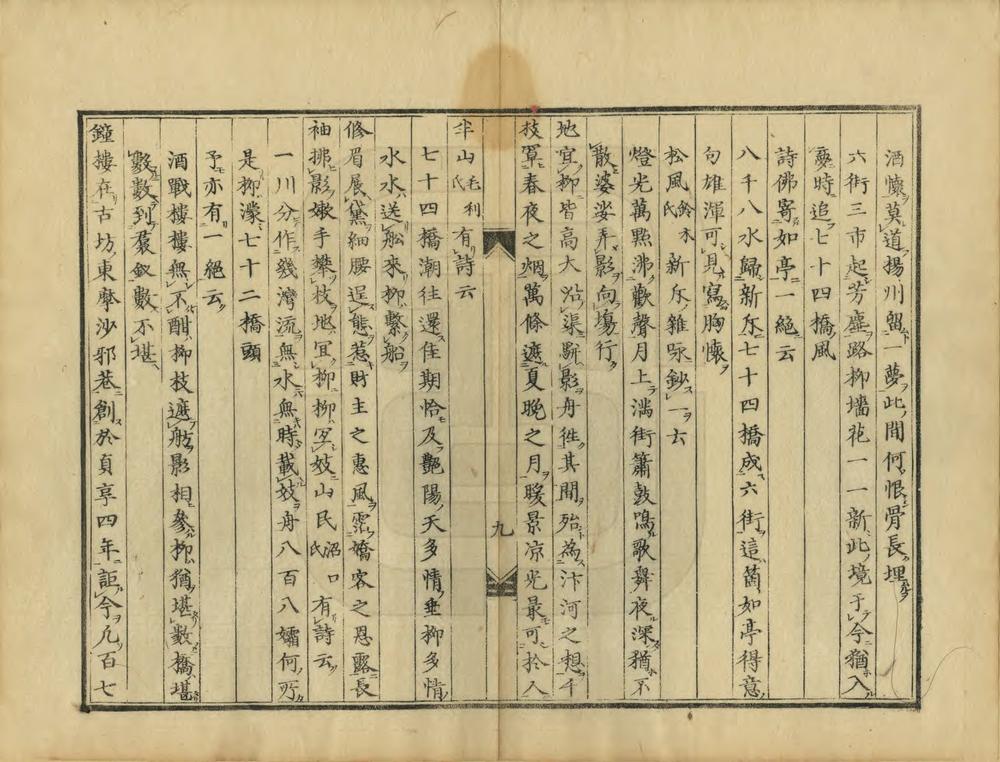 酒懷莫道揚州留一夢此間何恨骨長埋
六街三市起芳塵路柳墻花一一新此境于今猶入
慶時追七十四橋風
詩佛寄如亭一絕云
八千八水歸新斥七十四橋成六街這箇如亭得意
句雄渾可見寫胸懷
松風鈴木氏新斥雜詠鈔一云
燈光萬點沸歡聲月上滿街簫鼓鳴歌舞夜深猶不
散婆娑弄影向塲行
地宜柳皆高大沿渠斷影舟徃其間殆為汴河之想千
枝罩春夜之烟萬條遮夏晚之月暖景凉光最可於人
九
半山毛利氏有詩云
七十四橋潮往還佳期恰及艷陽天多情垂柳多情
水水送舩來柳繫船
修眉展黛細腰逞態惹財主之惠風霑嬌客之恩露長
袖拂影嫩手攀枝地宜柳柳宜妓山民沼口氏有詩云
一川分作幾灣流無水無時載妓舟八百八孀何所
是柳濛七十二橋頭
予亦有一絕云
酒戰樓樓無不酣柳枝遮舷影相參柳猶堪數橋堪
數數到羣釵數不堪
鐘樓在古坊東摩沙邪巷創於貞享四年詎今凡百七